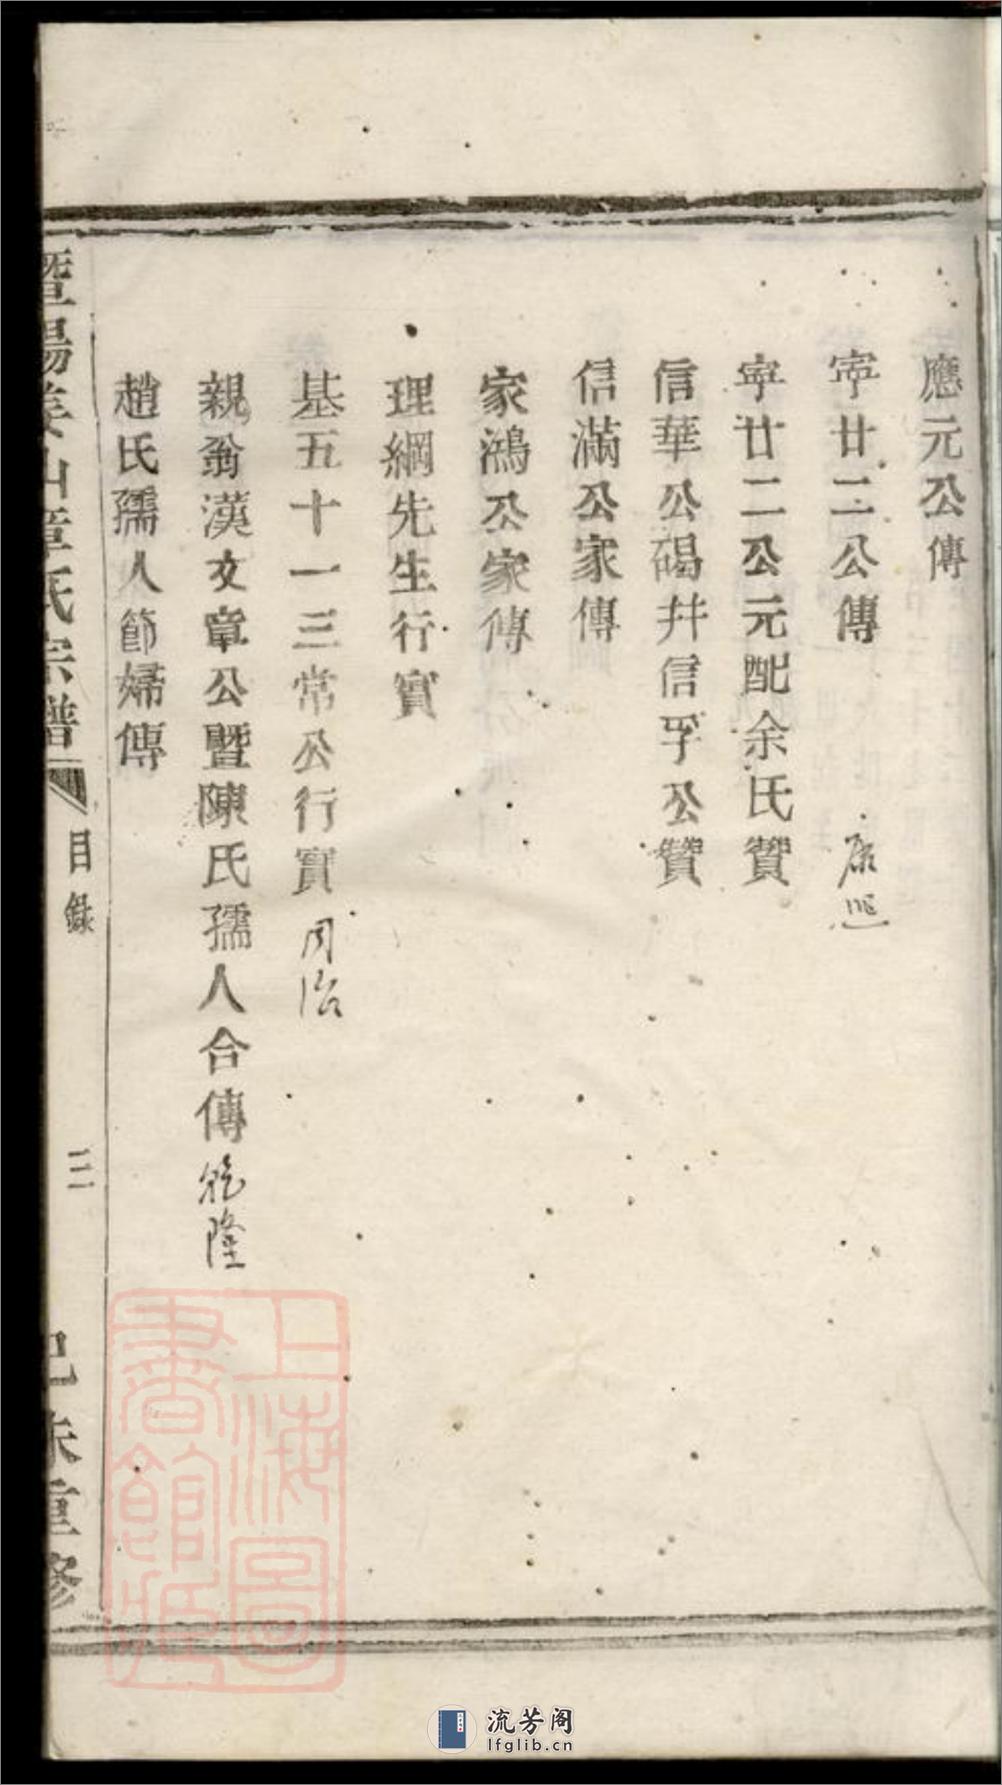 應元公傳
寧廿二公傳 康熙
寧廿二公元配余氏贊
信華公碣井信孚公贊
信滿公家傳
家鴻公家傳
理綱先生行實
基五十一三常公行實 同治
親翁漢文章公暨陳氏孺人合傳 乾隆
趙氏孺人節婦傳
暨陽姜山章氏宗譜 目錄 三 己未重修
上海圖書館藏
流芳阁
lfglib.cn